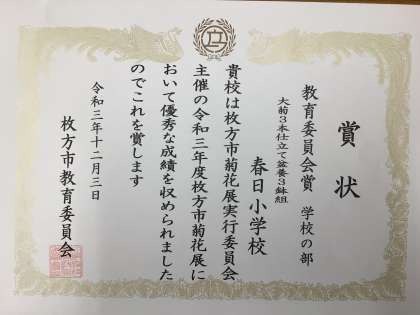 賞状
教育委員会賞 学校の部
大菊3本仕立て盆養3鉢組
春日小学校
貴校は枚方市菊花展実行委員会
主催の令和三年度枚方市菊花展に
おいて優秀な成績を収められました
のでこれを賞します
令和三年十二月三日
枚方市教育委員会